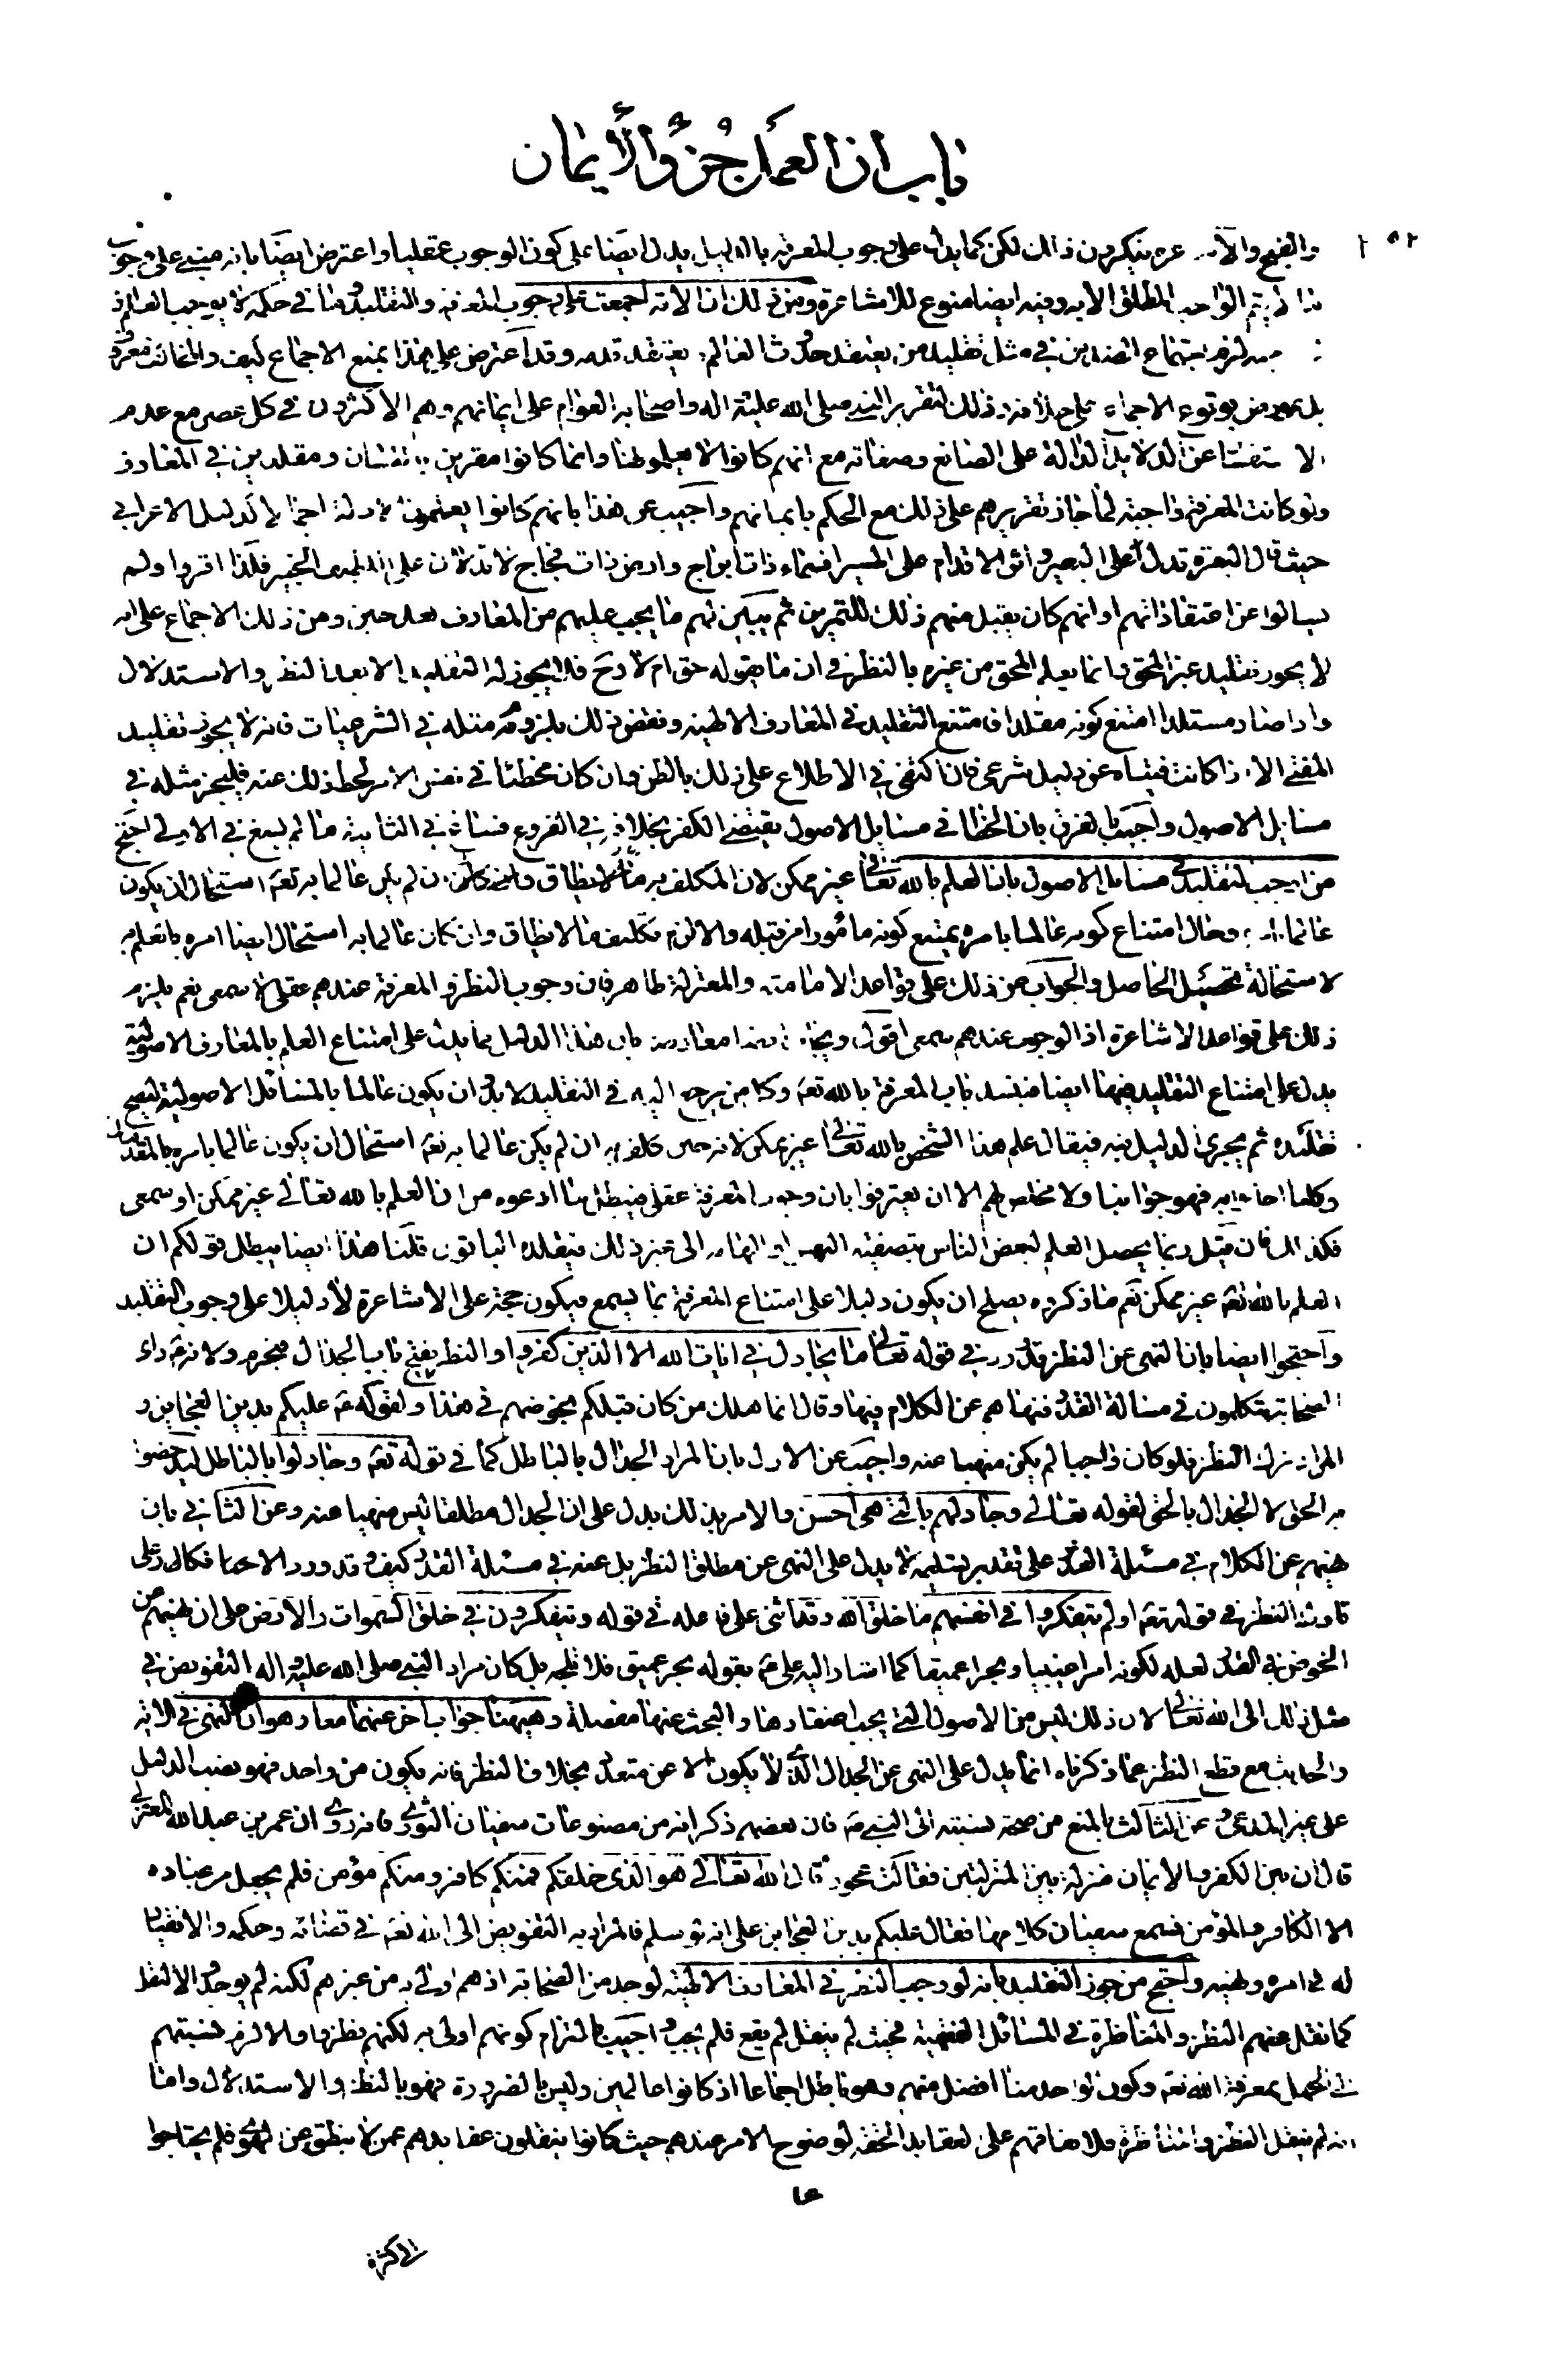 باب ان العمل جزؤ الأيمان
والقبح والاشاعرة ينكرون ذلك لكن كما يدل على وجوب المعرفة بالدليل يدل ايضا على كون الوجوب عقليا واعترض ايضا بانه مبنى على وجوب
ما لا يتم الواجب المطلق الا به وفيه ايضا منوع للاشاعرة ومن ذلك ان الامة اجمعت على وجوب المعرفة والتقليد وما فى حكمه لا يوجب العلم اذ
لزم اجتماع الضدين فى مثل تقليد من يعتقد حدوث العالم يعتقد قدمه وقد اعترض على هذا بمنع الاجماع كيف والمخالف معروف
بل عورض بوقوع الاجماع على خلافه وذلك لتقرير النبى صلى الله عليه واله واصحابه العوام على ايمانهم وهم الاكثرون فى كل عصر مع عدم
الاستفسار عن الدلايل الدالة على الصانع وصفاته مع انهم كانوا لا يعلمونها وانما كانوا مقرين باللسان ومقلدين فى المعارف
ولو كانت المعرفة واجبة لما جاز تقريرهم على ذلك مع الحكم بايمانهم واجيب عن هذا بانهم كانوا يعلمون الادلة اجمالا كدليل الاعرابى
حيث قال البعرة تدل على البعير واثر الاقدام على المسير افسماء ذات ابراج وارض ذات فجاج لا تدلان على اللطيف الخبير فلذا اقروا ولم
يسالوا عن اعتقاداتهم او انهم كان يقبل منهم ذلك للتمرين ثم يبين لهم ما يجب عليهم من المعارف بعد حين ومن ذلك الاجماع على انه
لا يجوز تقليد غير المحق وانما يعلم المحق من غيره بالنظر فى ان ما يقوله حق ام لا وح فلا يجوز له التقليد الا بعد النظر والاستدلال
واذا صار مستدلا امتنع كونه مقلدا فامتنع التقليد فى المعارف الالهية ونقض ذلك بلزوم مثله فى الشرعيات فانه لا يجوز تقليد
المفتى الا اذا كانت فتياه عن دليل شرعى فان اكتفى فى الاطلاع على ذلك بالظن وان كان مخطئا فى نفس الامر لحط ذلك عنه فليجز مثله فى
مسايل الاصول واجيب بالفرق بان الخطا فى مسايل الاصول يقتضى الكفر بخلافه فى الفروع فساغ فى الثانية ما لم يسغ فى الاولى احتج
من اوجب التقليد فى مسايل الاصول بان العلم بالله تعالى غير ممكن لان المكلف به ان لم يكن عالما به تعم استحال ان يكون
عالما بامره وحال امتناع كونه عالما بامره يمتنع كونه مأمورا من قبله والا لزم تكليف ما لا يطاق وان كان عالما به استحال ايضا امره بالعلم به
لاستحالة تحصيل الحاصل والجواب عن ذلك على قواعد الامامية والمعتزلة ظاهر فان وجوب النظر والمعرفة عندهم عقلى لا سمعى نعم يلزم
ذلك على قواعد الاشاعرة اذ الوجوب عندهم سمعى اقول ويجاب ايضا معارضة بان هذا الدليل كما يدل على امتناع العلم بالمعارف الاصولية
يدل على امتناع التقليد فيها ايضا فينسد باب المعرفة بالله تعم وكل من يرجع اليه فى التقليد لا بد ان يكون عالما بالمسائل الاصولية ليصح
تقليده ثم يجرى الدليل فيه فيقال علم هذا الشخص بالله تعالى غير ممكن لانه حين كلف به ان لم يكن عالما به تعم استحال ان يكون عالما بامره بالمقدمات
وكلما اجابوا به فهو جوابنا ولا مخلص لهم الا ان يعترفوا بان وجوب المعرفة عقلى فيبطل ما ادعوه من ان العلم بالله تعالى غير ممكن او سمعى
فكذلك فان قيل ربما يحصل العلم لبعض الناس بتصفية النفس او الهام الى غير ذلك فيقلده الباقون قلنا هذا ايضا يبطل قولكم ان
العلم بالله تعم غير ممكن نعم ما ذكروه يصلح ان يكون دليلا على امتناع المعرفة بالسمع فيكون حجة على الاشاعرة لا دليلا على وجوب التقليد
واحتجوا ايضا بان النهى عن النظر قد ورد فى قوله تعالى ما يجادل فى ايات الله الا الذين كفروا والنظر يفتح باب الجدال فيحرم ولانه عم راى
الصحابة يتكلمون فى مسالة القدر فنهاهم عن الكلام فيها وقال انما هلك من كان قبلكم بخوضهم فى هذا ولقوله عم عليكم بدين العجايز و
المراد ترك النظر فلو كان واجبا لم يكن منهيا عنه واجيب عن الاول بان المراد الجدال بالباطل كما فى قوله تعم وجادلوا بالباطل ليدحضوا
به الحق لا الجدال بالحق لقوله تعالى وجادلهم بالتى هى احسن والامر بذلك يدل على ان الجدال مطلقا ليس منهيا عنه وعن الثانى بان
نهيهم عن الكلام فى مسئلة القدر على تقدير تسليمه لا يدل على النهى عن مطلق النظر بل عنه فى مسئلة القدر كيف وقد ورد الانكار على
تارك النظر فى قوله تعم اولم يتفكروا فى انفسهم ما خلق الله وقد اثنى على فاعله فى قوله ويتفكرون فى خلق السموات والارض على ان نهيهم عن
الخوض فى القدر لعله لكونه امرا غيبيا وبحرا عميقا كما اشار اليه على عم بقوله بحر عميق فلا تلجه بل كان مراد النبى صلى الله عليه واله التفويض فى
مثل ذلك الى الله تعالى لان ذلك ليس من الاصول التى يجب اعتقادها والبحث عنها مفصلة وهيهنا جواب اخر عنهما معا وهو ان النهى فى الاية
والحديث مع قطع النظر عما ذكرناه انما يدل على النهى عن الجدال الذى لا يكون الا عن متعدد بخلاف النظر فانه يكون من واحد فهو نصب الدليل
على غير المدعى وعن الثالث بالمنع من صحة نسبته الى النبى ص فان بعضهم ذكر انه من مصنوعات سفيان الثورى فانه روى ان عمر بن عبد الله المعتزلى
قال ان بين الكفر والايمان منزلة بين المنزلتين فقالت عجوز قال الله تعالى هو الذى خلقكم فمنكم كافر ومنكم مؤمن فلم يجعل من عباده
الا الكافر والمؤمن فسمع سفيان كلامها فقال عليكم بدين العجايز على انه لو سلم فالمراد به التفويض الى الله تعم فى قضائه وحكمه والانقياد
له فى امره ونهيه واحتج من جوز التقليد بانه لو وجب النظر فى المعارف الالهية لوجد من الصحابة اذ هم اولى به من غيرهم لكنه لم يوجد والا لنقل
كما نقل عنهم النظر والمناظرة فى المسائل الفقهية فحيث لم ينقل لم يقع فلم يجب واجيب بالتزام كونهم اولى به لكنهم نظروا والا لزم نسبتهم
الى الجهل بمعرفة الله تعم وكون الواحد منا افضل منهم وهو باطل اجماعا اذ كانوا عالمين وليس بالضرورة فهو بالنظر والاستدلال واما
انه لم ينقل النظر والمناظرة فلاتفاقهم على العقايد الحقة لوضوح الامر عندهم حيث كانوا ينقلون عقايدهم عمن لا ينطق عن الهوى فلم يحتاجوا
الى كثرة